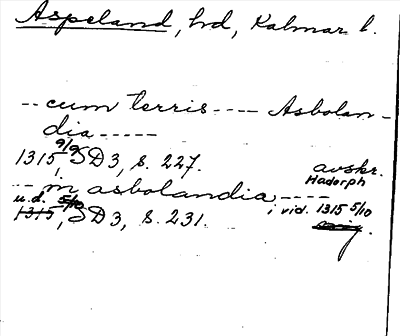 Aspeland, hd, Kalmar l.
-- cum terris ---- Asbolan-
dia -----
1315 9/9 SD 3, s. 227. avskr. Hadorph
-- in asbolandia ----
u.d. 5/10 i vid. 1315 5/10
1315, SD 3, s. 231.